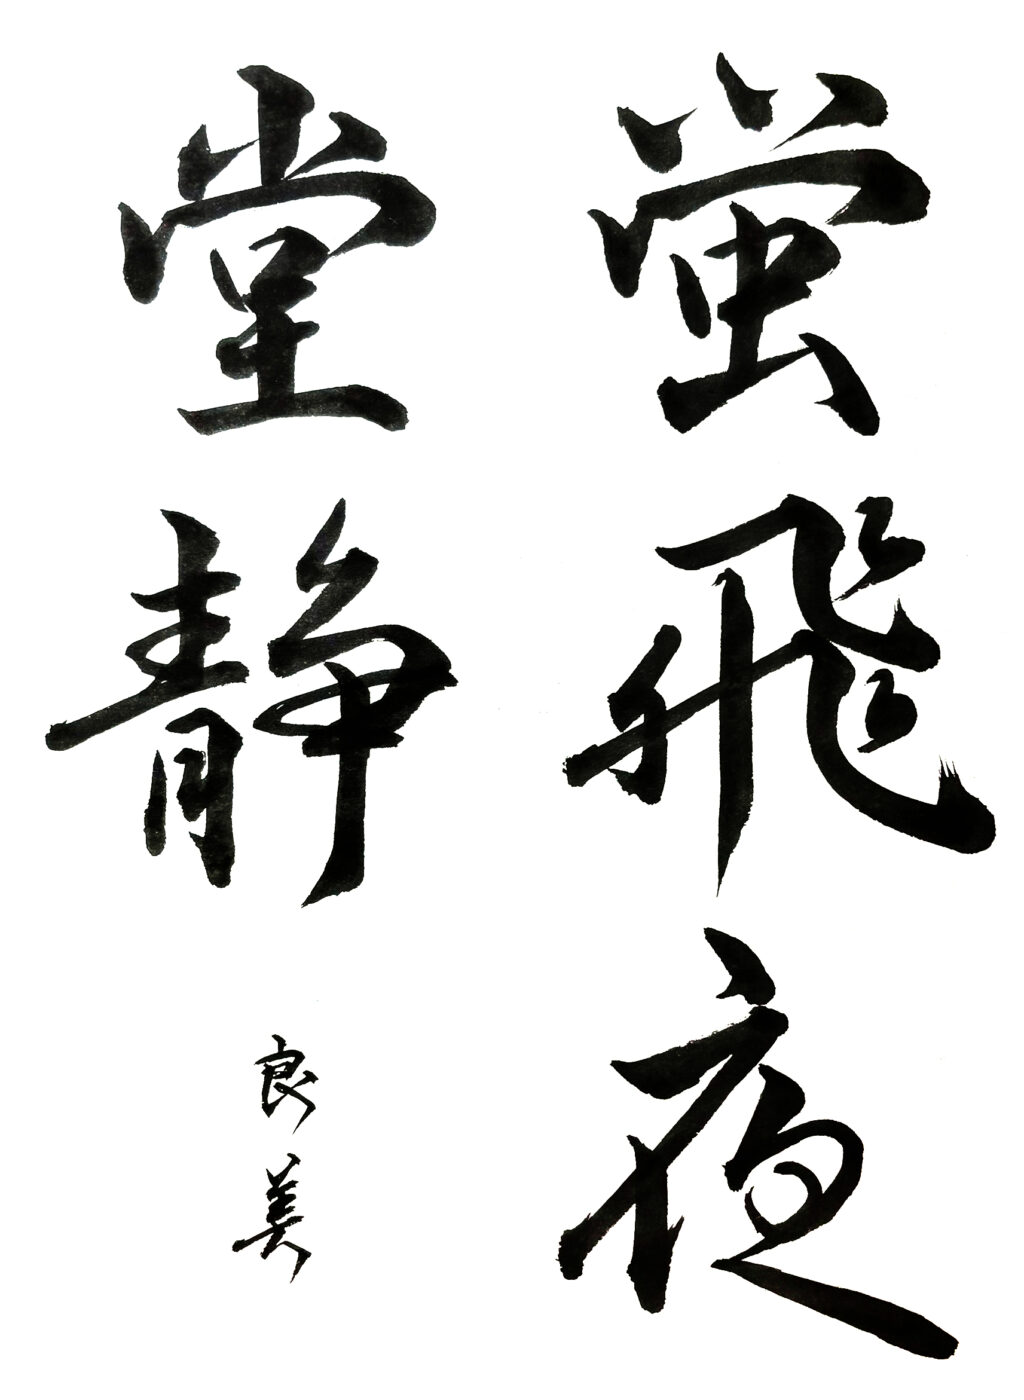 蛍飛夜
堂静
良美